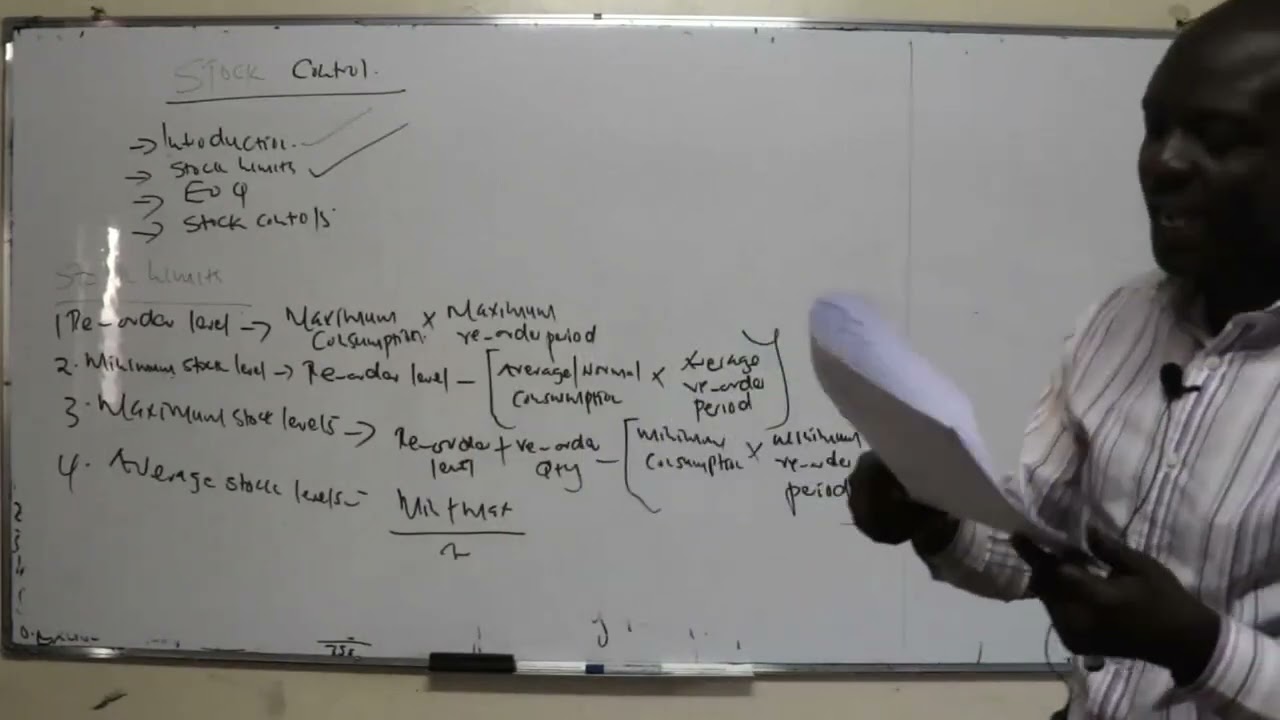 Stock Control.
→ Introduction. ✓
→ Stock Limits ✓
→ EOQ
→ Stock Controls
Stock Limits
1 Re-order level → Maximum Consumption. × Maximum re-order period
2. Minimum stock level → Re-order level - [Average/Normal Consumption × Average re-order period]
3. Maximum stock levels → Re-order level + re-order Qty - [Minimum Consumption × Minimum re-order period
4. Average stock levels = Min + Max
2